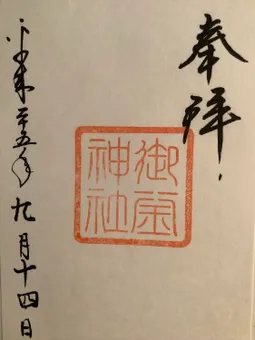 奉拝
御金神社
平成二十五年九月十四日